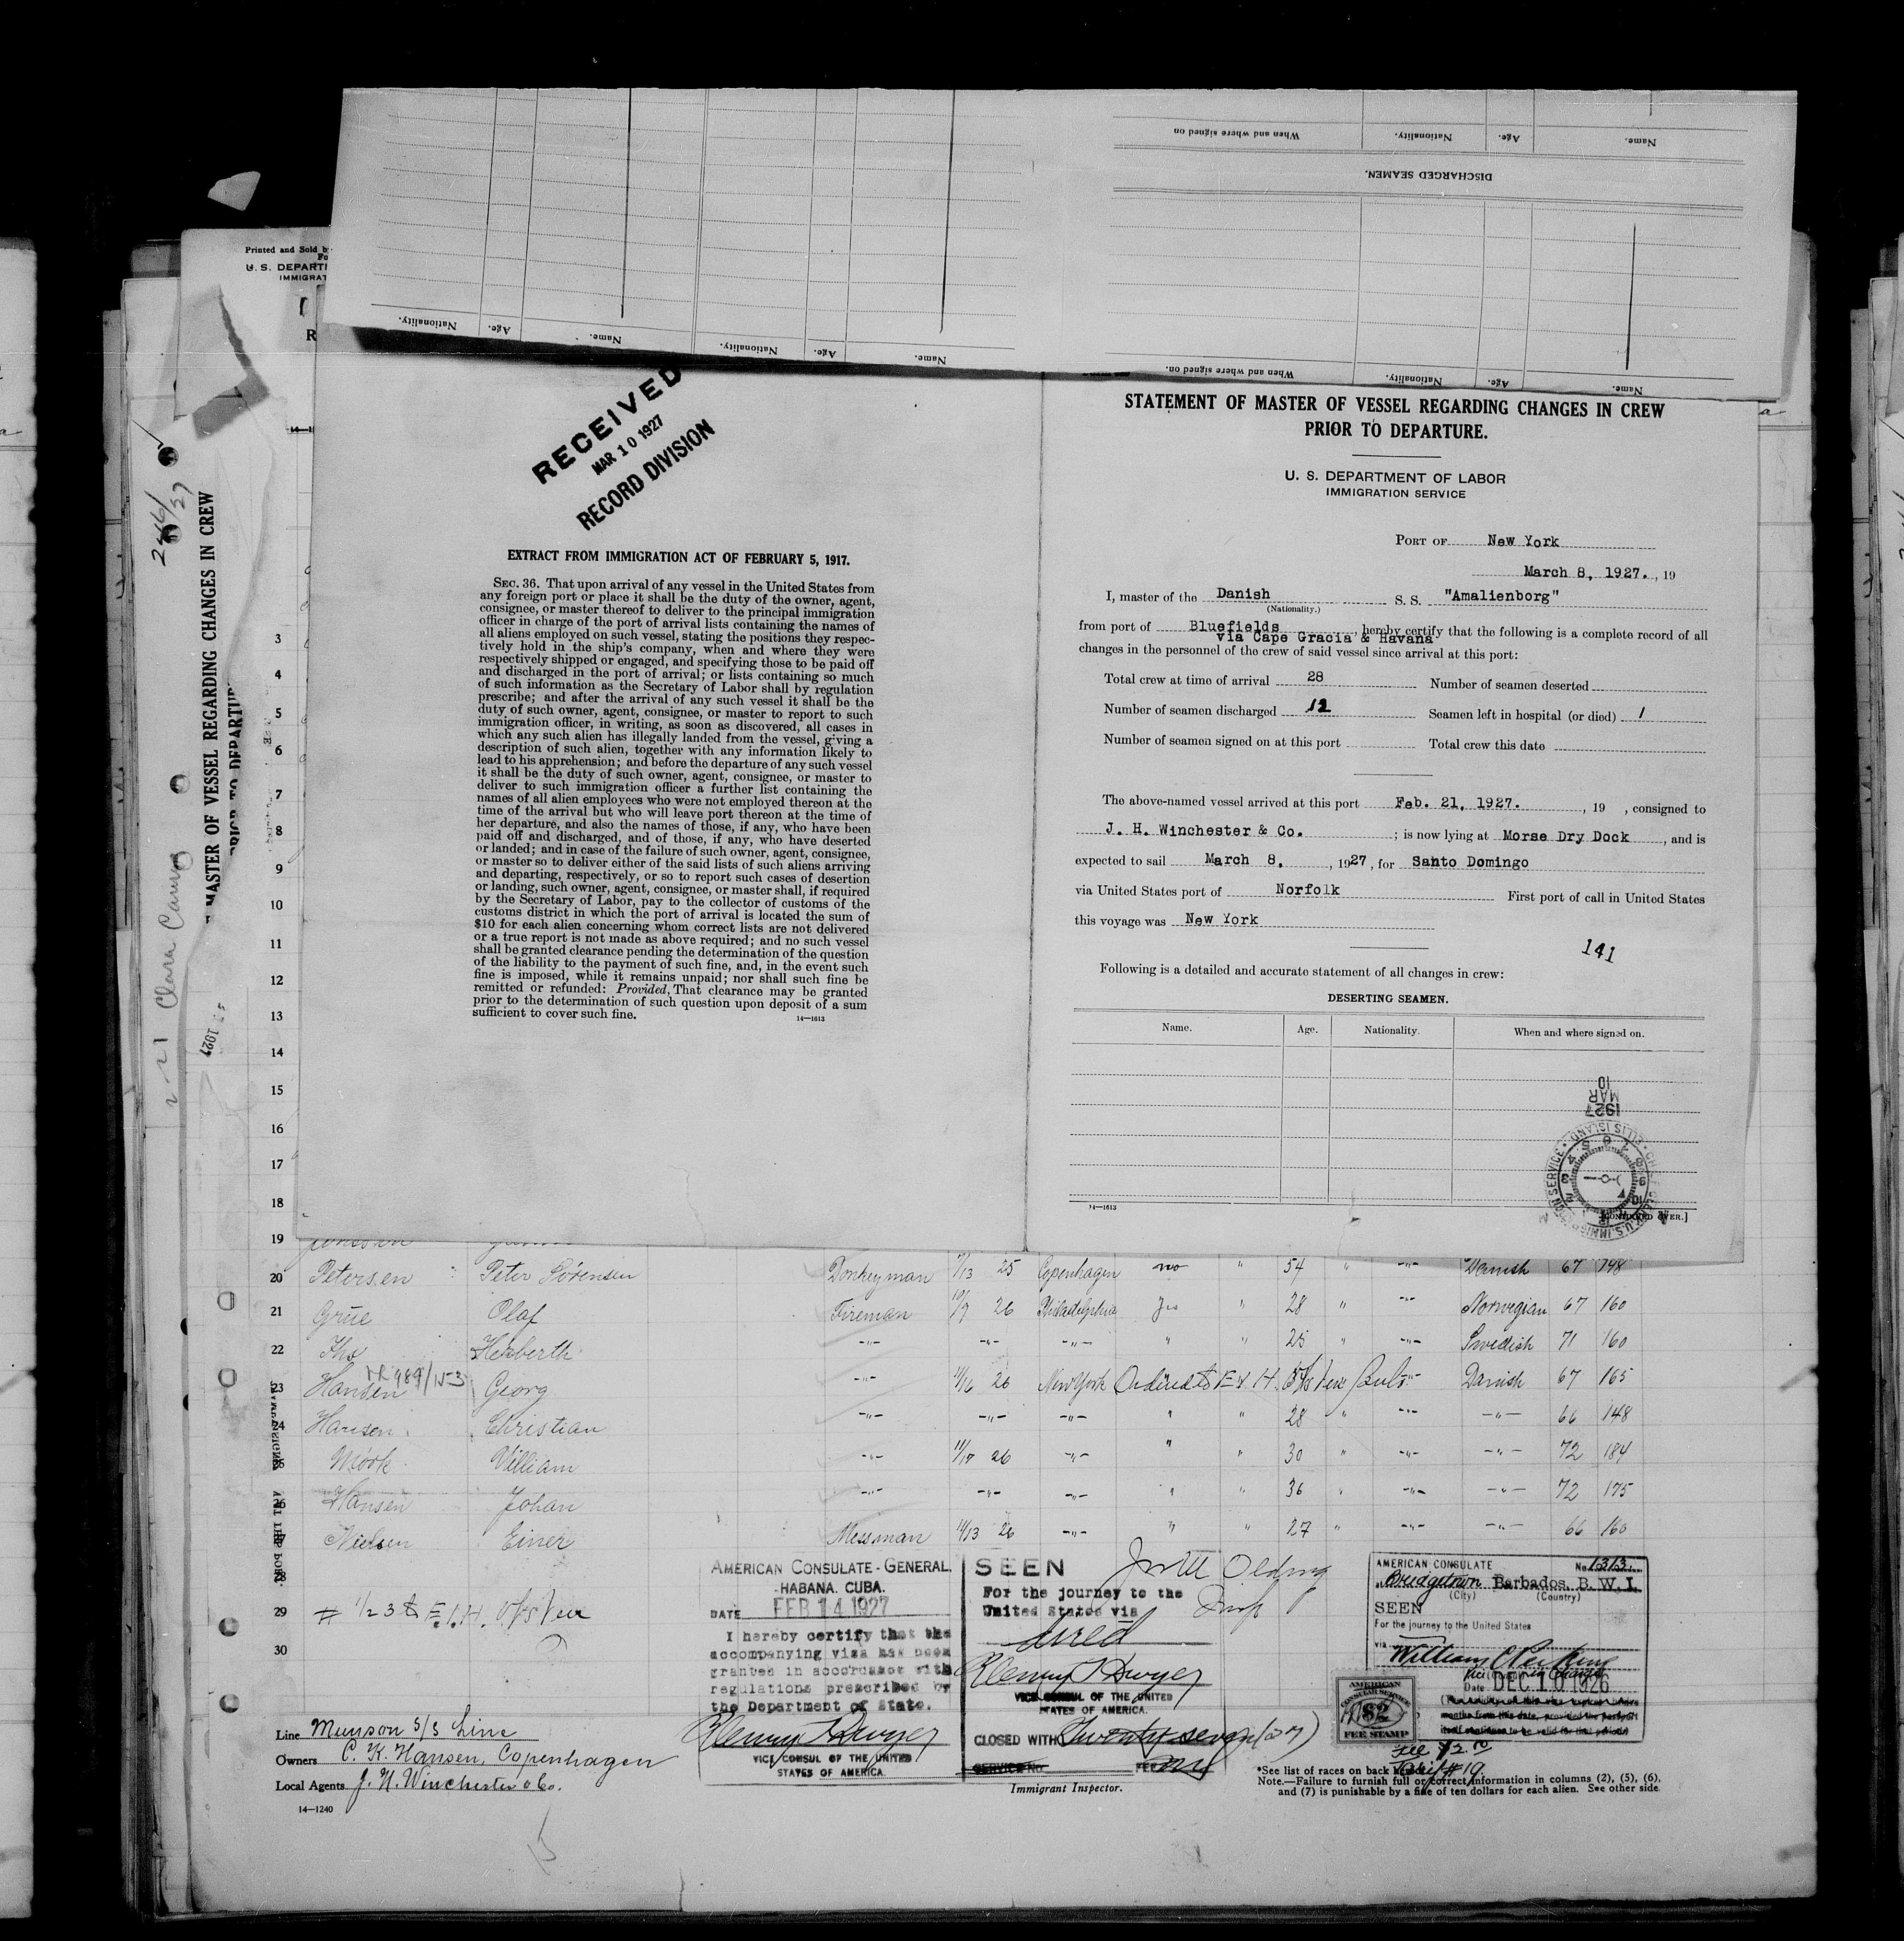 When and where signed on
Nationality.
Age.
Name.
DISCHARGED SEAMEN.
Nationality.
Age.
Name.
Nationality.
Age.
Name.
When and where signed on.
Nationality.
Age.
Name.
Printed and Sold b
U. S. DEPARTM
IMMIGRAT
2-21 Clara Camus
MASTER OF VESSEL REGARDING CHANGES IN CREW
PRIOR TO DEPARTURE
RECEIVED
MAR 10 1927
RECORD DIVISION
EXTRACT FROM IMMIGRATION ACT OF FEBRUARY 5, 1917.
SEC. 36. That upon arrival of any vessel in the United States from
any foreign port or place it shall be the duty of the owner, agent,
consignee, or master thereof to deliver to the principal immigration
officer in charge of the port of arrival lists containing the names of
all aliens employed on such vessel, stating the positions they respec-
tively hold in the ship's company, when and where they were
respectively shipped or engaged, and specifying those to be paid off
and discharged in the port of arrival; or lists containing so much
of such information as the Secretary of Labor shall by regulation
prescribe; and after the arrival of any such vessel it shall be the
duty of such owner, agent, consignee, or master to report to such
immigration officer, in writing, as soon as discovered, all cases in
which any such alien has illegally landed from the vessel, giving a
description of such alien, together with any information likely to
lead to his apprehension; and before the departure of any such vessel
it shall be the duty of such owner, agent, consignee, or master to
deliver to such immigration officer a further list containing the
names of all alien employees who were not employed thereon at the
time of the arrival but who will leave port thereon at the time of
her departure, and also the names of those, if any, who have been
paid off and discharged, and of those, if any, who have deserted
or landed; and in case of the failure of such owner, agent, consignee,
or master so to deliver either of the said lists of such aliens arriving
and departing, respectively, or so to report such cases of desertion
or landing, such owner, agent, consignee, or master shall, if required
by the Secretary of Labor, pay to the collector of customs of the
customs district in which the port of arrival is located the sum of
$10 for each alien concerning whom correct lists are not delivered
or a true report is not made as above required; and no such vessel
shall be granted clearance pending the determination of the question
of the liability to the payment of such fine, and, in the event such
fine is imposed, while it remains unpaid; nor shall such fine be
remitted or refunded: Provided, That clearance may be granted
prior to the determination of such question upon deposit of a sum
sufficient to cover such fine.
14—1613
STATEMENT OF MASTER OF VESSEL REGARDING CHANGES IN CREW
PRIOR TO DEPARTURE.
U. S. DEPARTMENT OF LABOR
IMMIGRATION SERVICE
PORT OF New York
March 8, 1927. , 19
I, master of the Danish S. S. "Amalienborg"
(Nationality.)
from port of Bluefields , hereby certify that the following is a complete record of all
via Cape Gracia & Havana
changes in the personnel of the crew of said vessel since arrival at this port:
Total crew at time of arrival 28 Number of seamen deserted
Number of seamen discharged 12 Seamen left in hospital (or died) 1
Number of seamen signed on at this port Total crew this date
The above-named vessel arrived at this port Feb. 21, 1927. , 19 , consigned to
J. H. Winchester & Co. ; is now lying at Morse Dry Dock , and is
expected to sail March 8, , 1927 , for Santo Domingo
via United States port of Norfolk First port of call in United States
this voyage was New York
141
Following is a detailed and accurate statement of all changes in crew:
DESERTING SEAMEN.
Name. Age. Nationality. When and where signed on.
1927
MAR
10
ELLIS ISLAND
14—1613
[CONTINUED OVER.]
3
4
5
6
7
8
9
10
11
12
13
14
15
16
17
18
19
20 Petersen Peter Sørensen Donkeyman 25 Copenhagen no " 54 " -"- Danish 67 198
21 Grüe Olaf Fireman 10/9 26 Philadelphia Yes " 28 " -"- Norwegian 67 160
22 Herberth -"- -"- -"- " " 25 " -"- Swedish 71 160
23 Hansen Georg -"- 11/16 26 New York Danish 67 165
24 Hansen Christian -"- -"- -"- " " 28 " -"- -"- 66 148
25 Mörk Villiam -"- 11/17 26 -"- " " 30 " -"- -"- 72 184
26 Hansen Johan -"- -"- -"- " " 36 " -"- -"- 72 175
27 Nielsen Einer Messman 11/13 26 -"- " " 27 " -"- -"- 66 160
28
29
30
AMERICAN CONSULATE-GENERAL,
HABANA, CUBA.
DATE FEB 14 1927
I hereby certify that the
accompanying visa has been
granted in accordance with
regulations prescribed by
the Department of State.
VICE CONSUL OF THE UNITED
STATES OF AMERICA.
SEEN
For the journey to the
United States via
direct
VICE CONSUL OF THE UNITED
STATES OF AMERICA.
CLOSED WITH Twenty seven (27)
SERVICE No. FEE
Immigrant Inspector.
AMERICAN CONSULATE No. 1313.
at Bridgetown Barbados, B. W. I.
(City) (Country)
SEEN
For the journey to the United States
via
Date DEC 10 1926
AMERICAN
CONSULAR SERVICE
$2
FEE STAMP
Line Munson S/S Line
Owners C. K. Hansen, Copenhagen
Local Agents J. H. Winchester & Co.
14—1240
*See list of races on back
Note.—Failure to furnish full or correct information in columns (2), (5), (6),
and (7) is punishable by a fine of ten dollars for each alien. See other side.